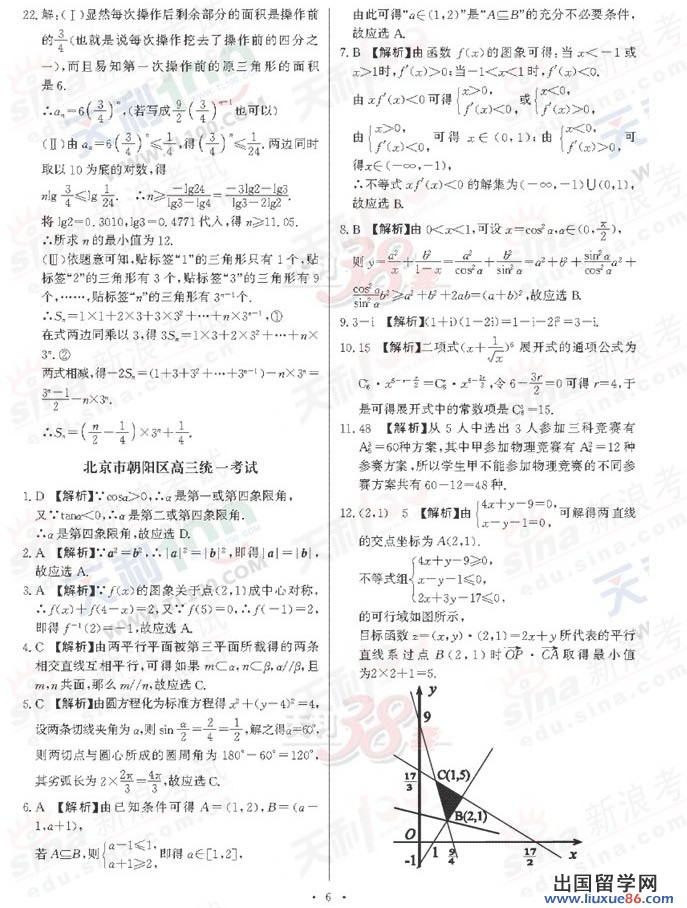 22. 解:(Ⅰ)显然每次操作后剩余部分的面积是操作前
的3/4(也就是说每次操作挖去了操作前的四分之
一),而且易知第一次操作前的原三角形的面积
是6.
∴aₙ=6(3/4)ⁿ.(若写成9/2(3/4)ⁿ⁻¹也可以)
(Ⅱ)由aₙ=6(3/4)ⁿ≤1/4,得(3/4)ⁿ≤1/24.两边同时
取以10为底的对数,得
nlg 3/4≤lg 1/24. ∴n≥(-lg24)/(lg3-lg4)=(-3lg2-lg3)/(lg3-2lg2).
将lg2=0.3010,lg3=0.4771代入,得n≥11.05.
∴所求n的最小值为12.
(Ⅲ)依题意可知,贴标签“1”的三角形只有1个,贴
标签“2”的三角形有3个,贴标签“3”的三角形有9
个,……,贴标签“n”的三角形有3ⁿ⁻¹个.
∴Sₙ=1×1+2×3+3×3²+…+n×3ⁿ⁻¹,①
在式两边同乘以3,得3Sₙ=1×3+2×3²+…+n×
3ⁿ.②
两式相减,得-2Sₙ=(1+3+3²+…+3ⁿ⁻¹)-n×3ⁿ=
(3ⁿ-1)/2-n×3ⁿ.
∴Sₙ=(n/2-1/4)×3ⁿ+1/4.
北京市朝阳区高三统一考试
1. D 【解析】∵cosα>0,∴α是第一或第四象限角,
又∵tanα<0,∴α是第二或第四象限角.
∴α是第四象限角,故应选D.
2. A 【解析】∵a²=b²,∴|a|²=|b|²,即得|a|=|b|,
故应选A.
3. A 【解析】∵f(x)的图象关于点(2,1)成中心对称,
∴f(x)+f(4-x)=2,又∵f(5)=0,∴f(-1)=2,
即得f⁻¹(2)=-1,故应选A.
4. C 【解析】由两平行平面被第三平面所截得的两条
相交直线互相平行,可得如果m⊂α,n⊂β,α//β,且
m,n共面,那么m//n,故应选C.
5. C 【解析】由圆方程化为标准方程得x²+(y-4)²=4,
设两条切线夹角为α,则sin α/2=2/4=1/2,解之得α=60°,
则两切点与圆心所成的圆周角为180°-60°=120°,
其劣弧长为2×2π/3=4π/3,故应选C.
6. A 【解析】由已知条件可得A=(1,2),B=(a-
1,a+1),
若A⊆B,则{a-1≤1, a+1≥2, 即得a∈[1,2],
由此可得“a∈(1,2)”是“A⊆B”的充分不必要条件,
故应选A.
7. B 【解析】由函数f(x)的图象可得:当x<-1或
x>1时,f′(x)>0;当-1<x<1时,f′(x)<0.
由xf′(x)<0可得{x>0, f′(x)<0, 或{x<0, f′(x)>0,
由{x>0, f′(x)<0, 可得x∈(0,1);由{x<0, f′(x)>0, 可
得x∈(-∞,-1),
∴不等式xf′(x)<0的解集为(-∞,-1)∪(0,1),
故应选B.
8. B 【解析】由0<x<1,可设x=cos²α,α∈(0,π/2),
则y=a²/x+b²/(1-x)=a²/cos²α+b²/sin²α=a²+b²+(sin²α/cos²α)a²+
(cos²α/sin²α)b²≥a²+b²+2ab=(a+b)²,故应选B.
9. 3-i 【解析】(1+i)(1-2i)=1-i-2i²=3-i.
10. 15 【解析】二项式(x+1/√x)⁶展开式的通项公式为
C₆ʳ·x^(6-r-r/2)=C₆ʳ·x^(6-3r/2),令6-3r/2=0可得r=4,于
是可得展开式中的常数项是C₆⁴=15.
11. 48 【解析】从5人中选出3人参加三科竞赛有
A₅³=60种方案,其中甲参加物理竞赛有A₄²=12种
参赛方案,所以学生甲不能参加物理竞赛的不同参
赛方案共有60-12=48种.
12. (2,1) 5 【解析】由{4x+y-9=0, x-y-1=0, 可解得两直线
的交点坐标为A(2,1).
不等式组{4x+y-9≥0, x-y-1≤0, 2x+3y-17≤0,
的可行域如图所示,
目标函数z=(x,y)·(2,1)=2x+y所代表的平行
直线系过点B(2,1)时OP·CA取得最小值
为2×2+1=5.
y
9
17/3
C(1,5)
B(2,1)
O
-1
1
9/4
17/2
x
· 6 ·
出国留学网
www.liuxue86.com